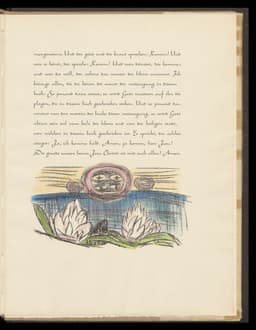 morgenstern. Und der geist und die braut sprechen: Komm! Und
wer es hört, der spreche: Komm! Und wen dürstet, der komme,
und wer da will, der nehme das wasser des lebens umsonst. Ich
bezeuge allen, die da hören die worte der weissagung in diesem
buch: So jemand dazu setzet, so wird Gott zusetzen auf ihn die
plagen, die in diesem buch geschrieben stehen. Und so jemand da-
von tut von den worten des buchs dieser weissagung, so wird Gott
abtun sein teil vom holz des lebens und von der heiligen stadt,
von welchen in diesem buch geschrieben ist. Es spricht, der solches
zeuget: Ja, ich komme bald. Amen, ja komm, herr Jesu!
Die gnade unsers herrn Jesu Christi sei mit euch allen! Amen.